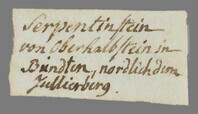 Serpentinstein
von Oberhalbstein in
Bündten, nordlich dem
Jullierberg.